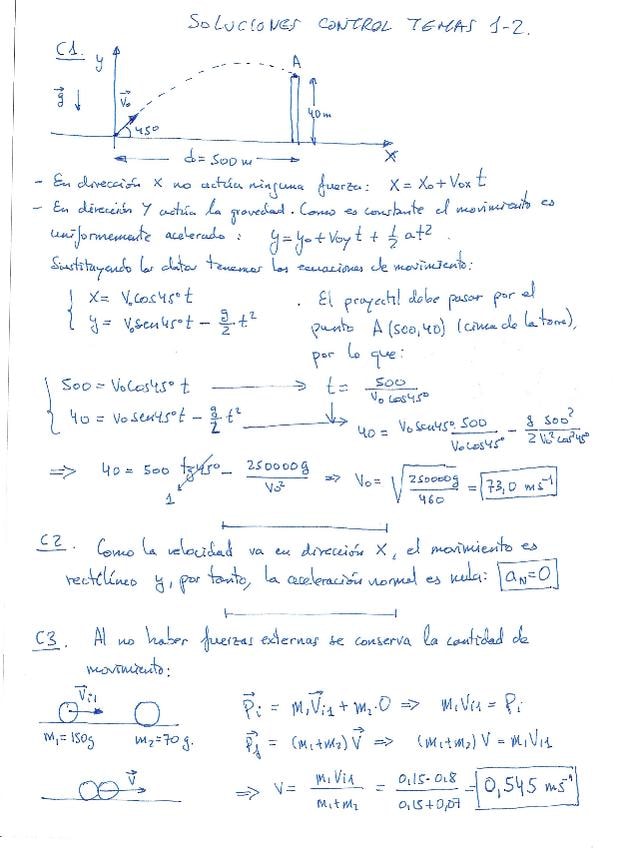 SOLUCIONES CONTROL TEMAS 1-2.
C1.
y
A
g⃗ ↓
V⃗₀
45°
40m
d₀ = 500m
X
- En dirección X no actúa ninguna fuerza: X = X₀ + V₀ₓ t
- En dirección Y actúa la gravedad. Como es constante el movimiento es
uniformemente acelerado: y = y₀ + V₀y t + 1/2 at².
Sustituyendo los datos tenemos las ecuaciones de movimiento:
{ X = V₀cos45° t
{ y = V₀sen45°t - g/2 · t²
. El proyectil debe pasar por el
punto A (500,40) (cima de la torre),
por lo que:
{ 500 = V₀cos45° t → t = 500 / V₀cos45°
{ 40 = V₀sen45°t - g/2 t² → 40 = V₀sen45° · 500 / V₀cos45° - g 500² / 2V₀²cos²45°
⇒ 40 = 500 tg45° - 250000g / V₀² ⇒ V₀ = √(250000g / 460) = 73,0 ms⁻¹
1
C2. Como la velocidad va en dirección X, el movimiento es
rectilíneo y, por tanto, la aceleración normal es nula: aN=0
C3. Al no haber fuerzas externas se conserva la cantidad de
movimiento:
V⃗i1
m₁=150g m₂=70g.
P⃗i = m₁V⃗i1 + m₂·0 ⇒ m₁Vi1 = Pi
P⃗f = (m₁+m₂) V⃗ ⇒ (m₁+m₂) V = m₁Vi1
V⃗
⇒ V = m₁Vi1 / m₁+m₂ = 0,15·0,8 / 0,15+0,07 = 0,545 ms⁻¹